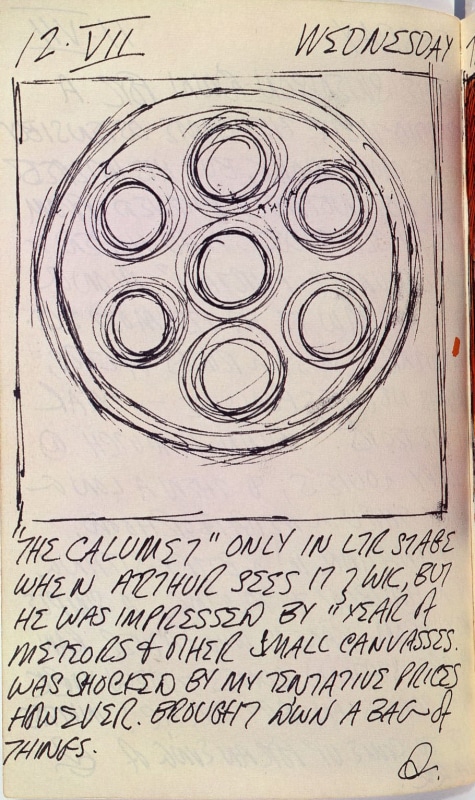 12·VII WEDNESDAY
"THE CALUMET" ONLY IN LTR STAGE
WHEN ARTHUR SEES IT 7 WK, BUT
HE WAS IMPRESSED BY "YEAR OF
METEORS & OTHER SMALL CANVASSES.
WAS SHOCKED BY MY TENTATIVE PRICES
HOWEVER. BROUGHT DOWN A BAG OF
THINGS.